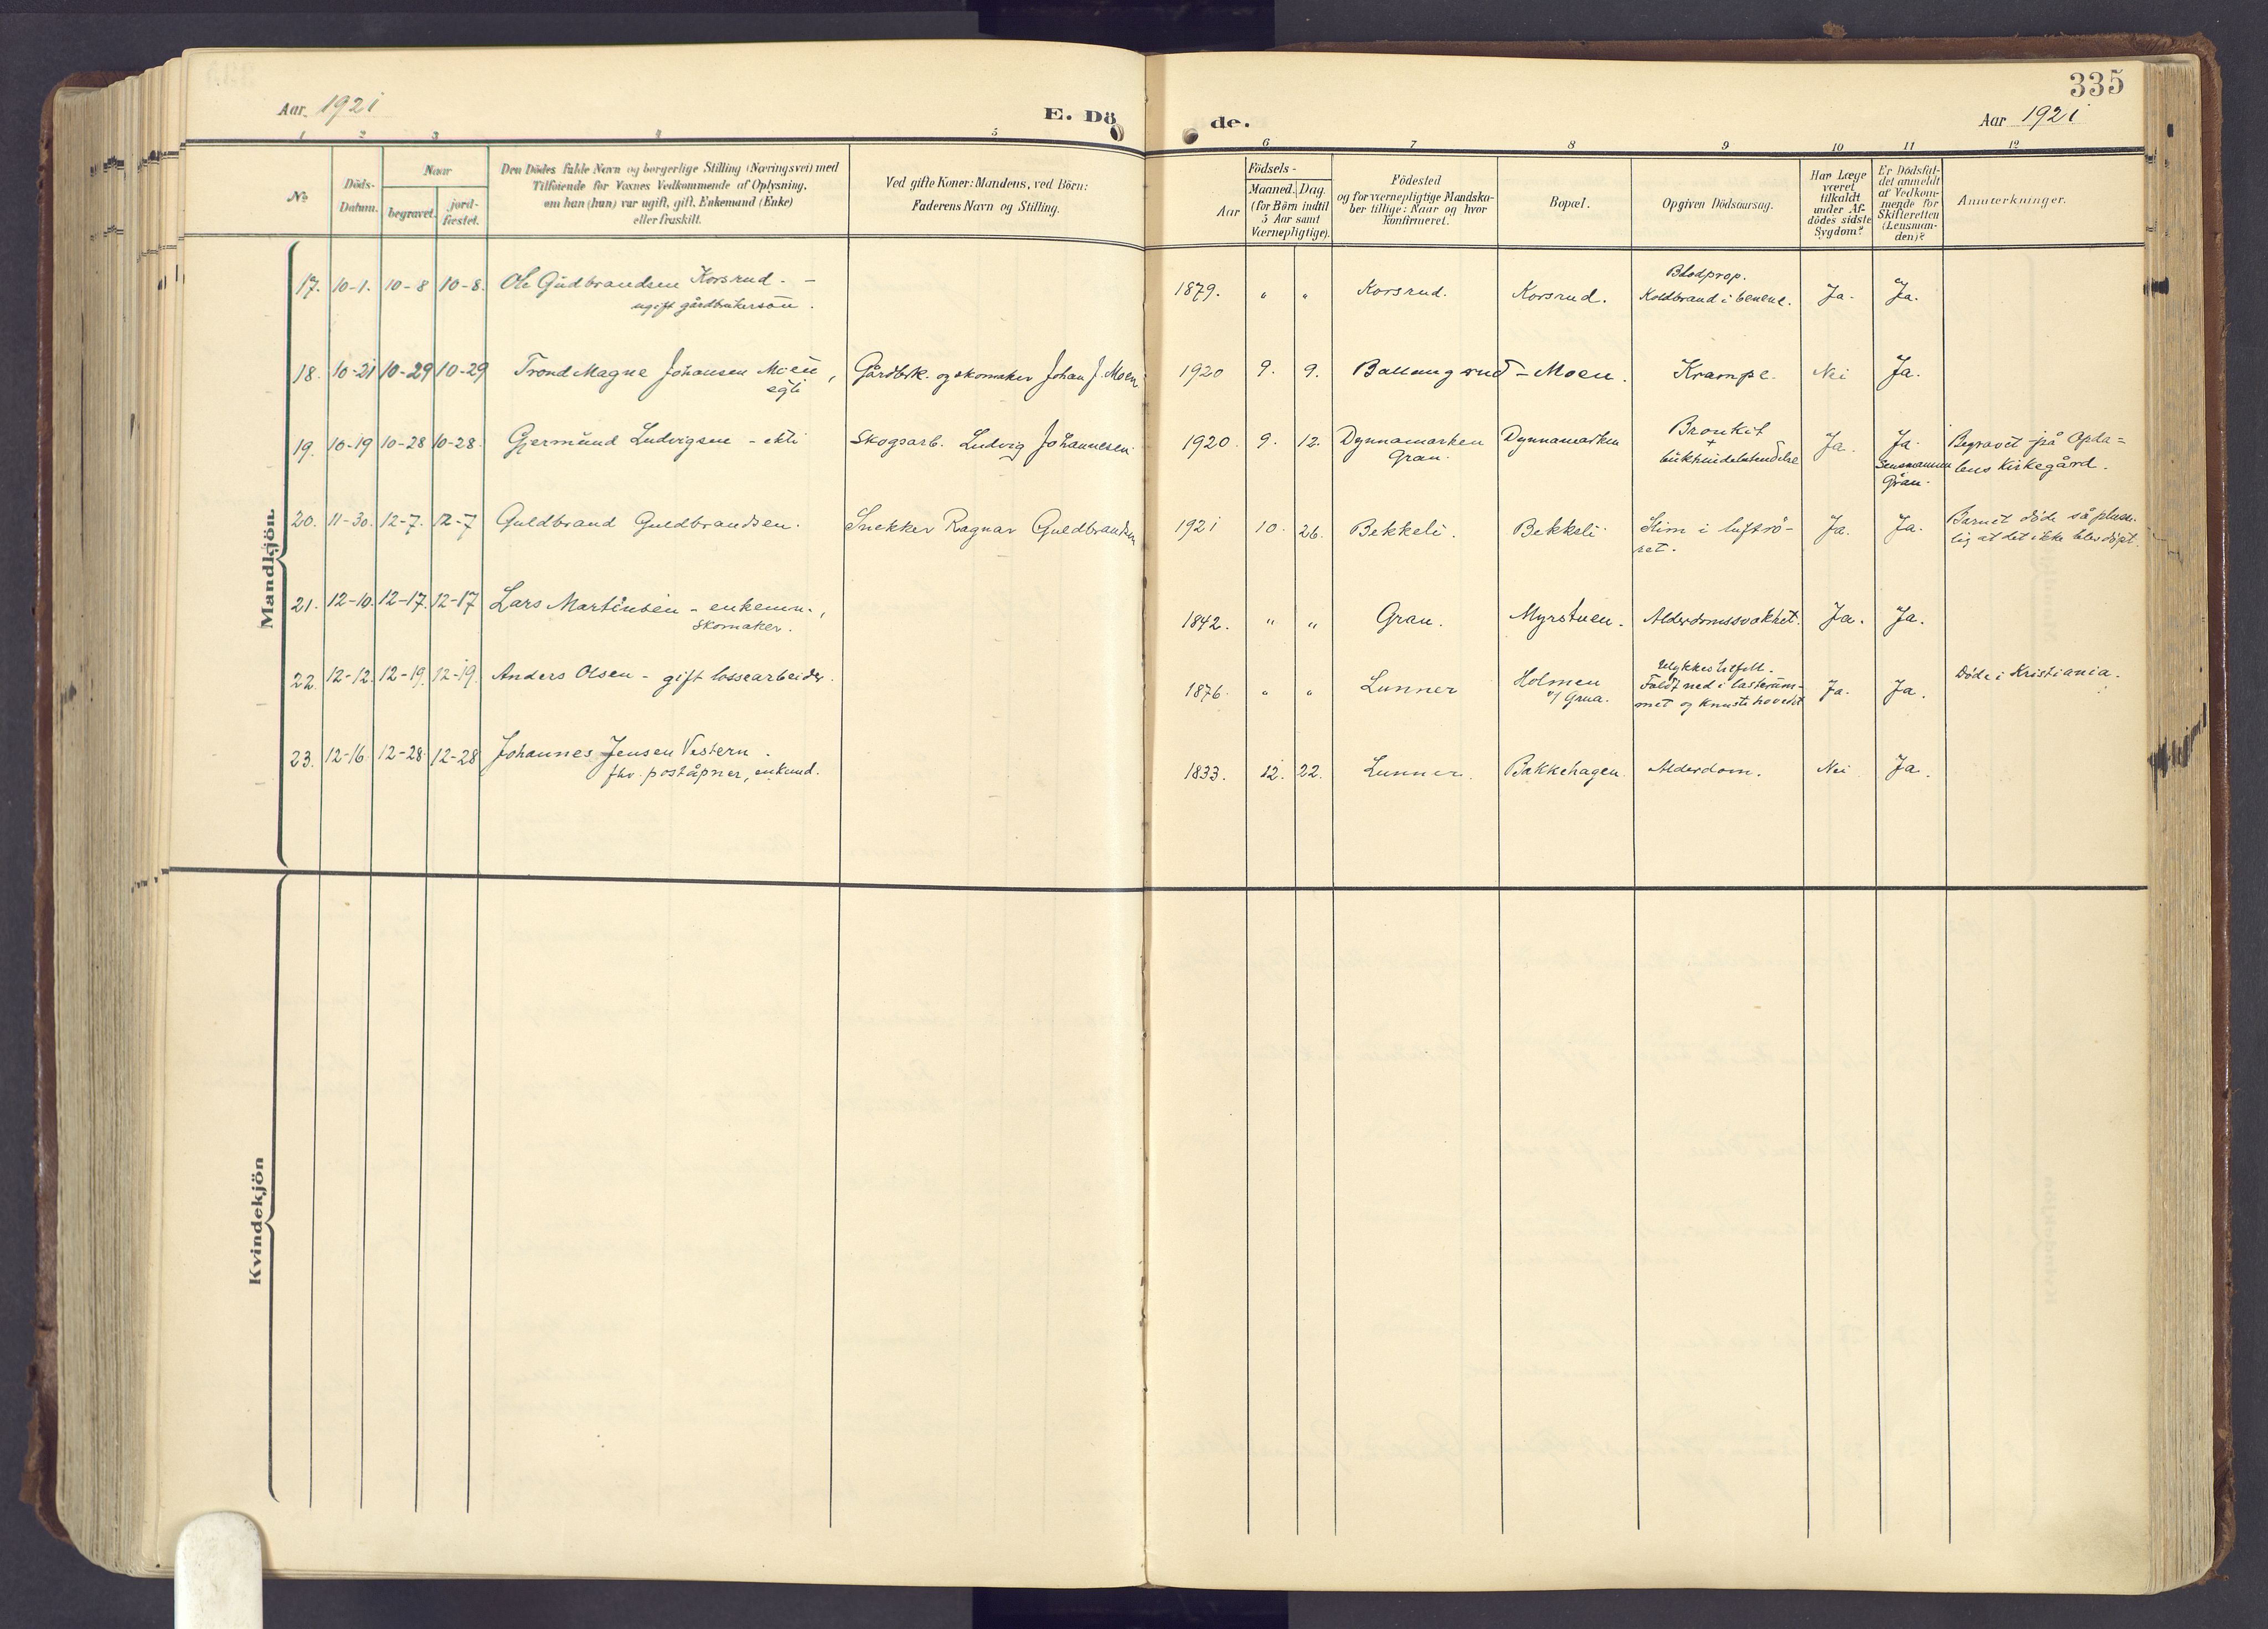 335
Aar 1921
E. Döde.
Aar 1921
1 2 3 4 5 6 7 8 9 10 11 12
No
Döds-
Datum.
Naar
begravet.
jord-
fæstet.
Den Dödes fulde Navn og borgerlige Stilling (Næringsvei) med
Tilföiende for Voxnes Vedkommende af Oplysning,
om han (hun) var ugift, gift, Enkemand (Enke)
eller fraskilt.
Ved gifte Koner: Mandens, ved Börn:
Faderens Navn og Stilling.
Födsels-
Aar
Maaned. Dag.
(for Börn indtil
5 Aar samt
Værnepligtige).
Födested
og for værnepligtige Mandska-
ber tillige: Naar og hvor
konfirmeret.
Bopæl.
Opgiven Dödsaarsag.
Har Læge
været
tilkaldt
under Af-
dödes sidste
Sygdom?
Er Dödsfal-
det anmeldt
af Vedkom-
mende for
Skifteretten
(Lensman-
den)?
Anmærkninger.
Mandkjön.
17. 10-1. 10-8 10-8. Ole Gudbrandsen Korsrud. -
ugift gårdbrukersøn.
1879. " " Korsrud. Korsrud. Blodprop.
Koldbrand i benene. Ja. Ja.
18. 10-21 10-29 10-29 Trond Magne Johansen Moen,
egte
Gårdbrk. og skomaker Johan J. Moen
1920 9. 9. Ballangrud - Moen. Krampe. Nei Ja.
19. 10-19 10-28 10-28. Gjermund Ludvigsen - ekte
Skogsarb. Ludvig Johannesen.
1920. 9. 12. Dynnamarken
Gran.
Dynnamarken
Bronkit
+
bukhindebetendelse
Ja. Ja.
Lensmannen
Gran.
Begravet på Opda=
lens Kirkegård.
20. 11-30. 12-7. 12-7 Guldbrand Guldbrandsen.
Snekker Ragnar Guldbrandsen
1921 10. 26. Bekkeli. Bekkeli. Slim i luftrø-
ret.
Ja. Ja.
Barnet døde så pludse-
lig at det ikke blev døpt.
21. 12-10. 12-17. 12-17 Lars Martinsen - enkem.,
skomaker.
1842. " " Gran. Myrstuen. Alderdomssvakhet. Ja. Ja.
22. 12-12. 12-19. 12-19. Anders Olsen - gift lossearbeider.
1876. " " Lunner Holmen
v/ Grua.
Ulykkestilfelle.
Faldt ned i lasterum-
met og knuste hovedet
Ja. Ja. Døde i Kristiania.
23. 12-16 12-28 12-28 Johannes Jensen Vestern.
fhv. poståpner, enkemd.
1833. 12. 22. Lunner. Bakkehagen. Alderdom. Nei Ja.
Kvindekjön